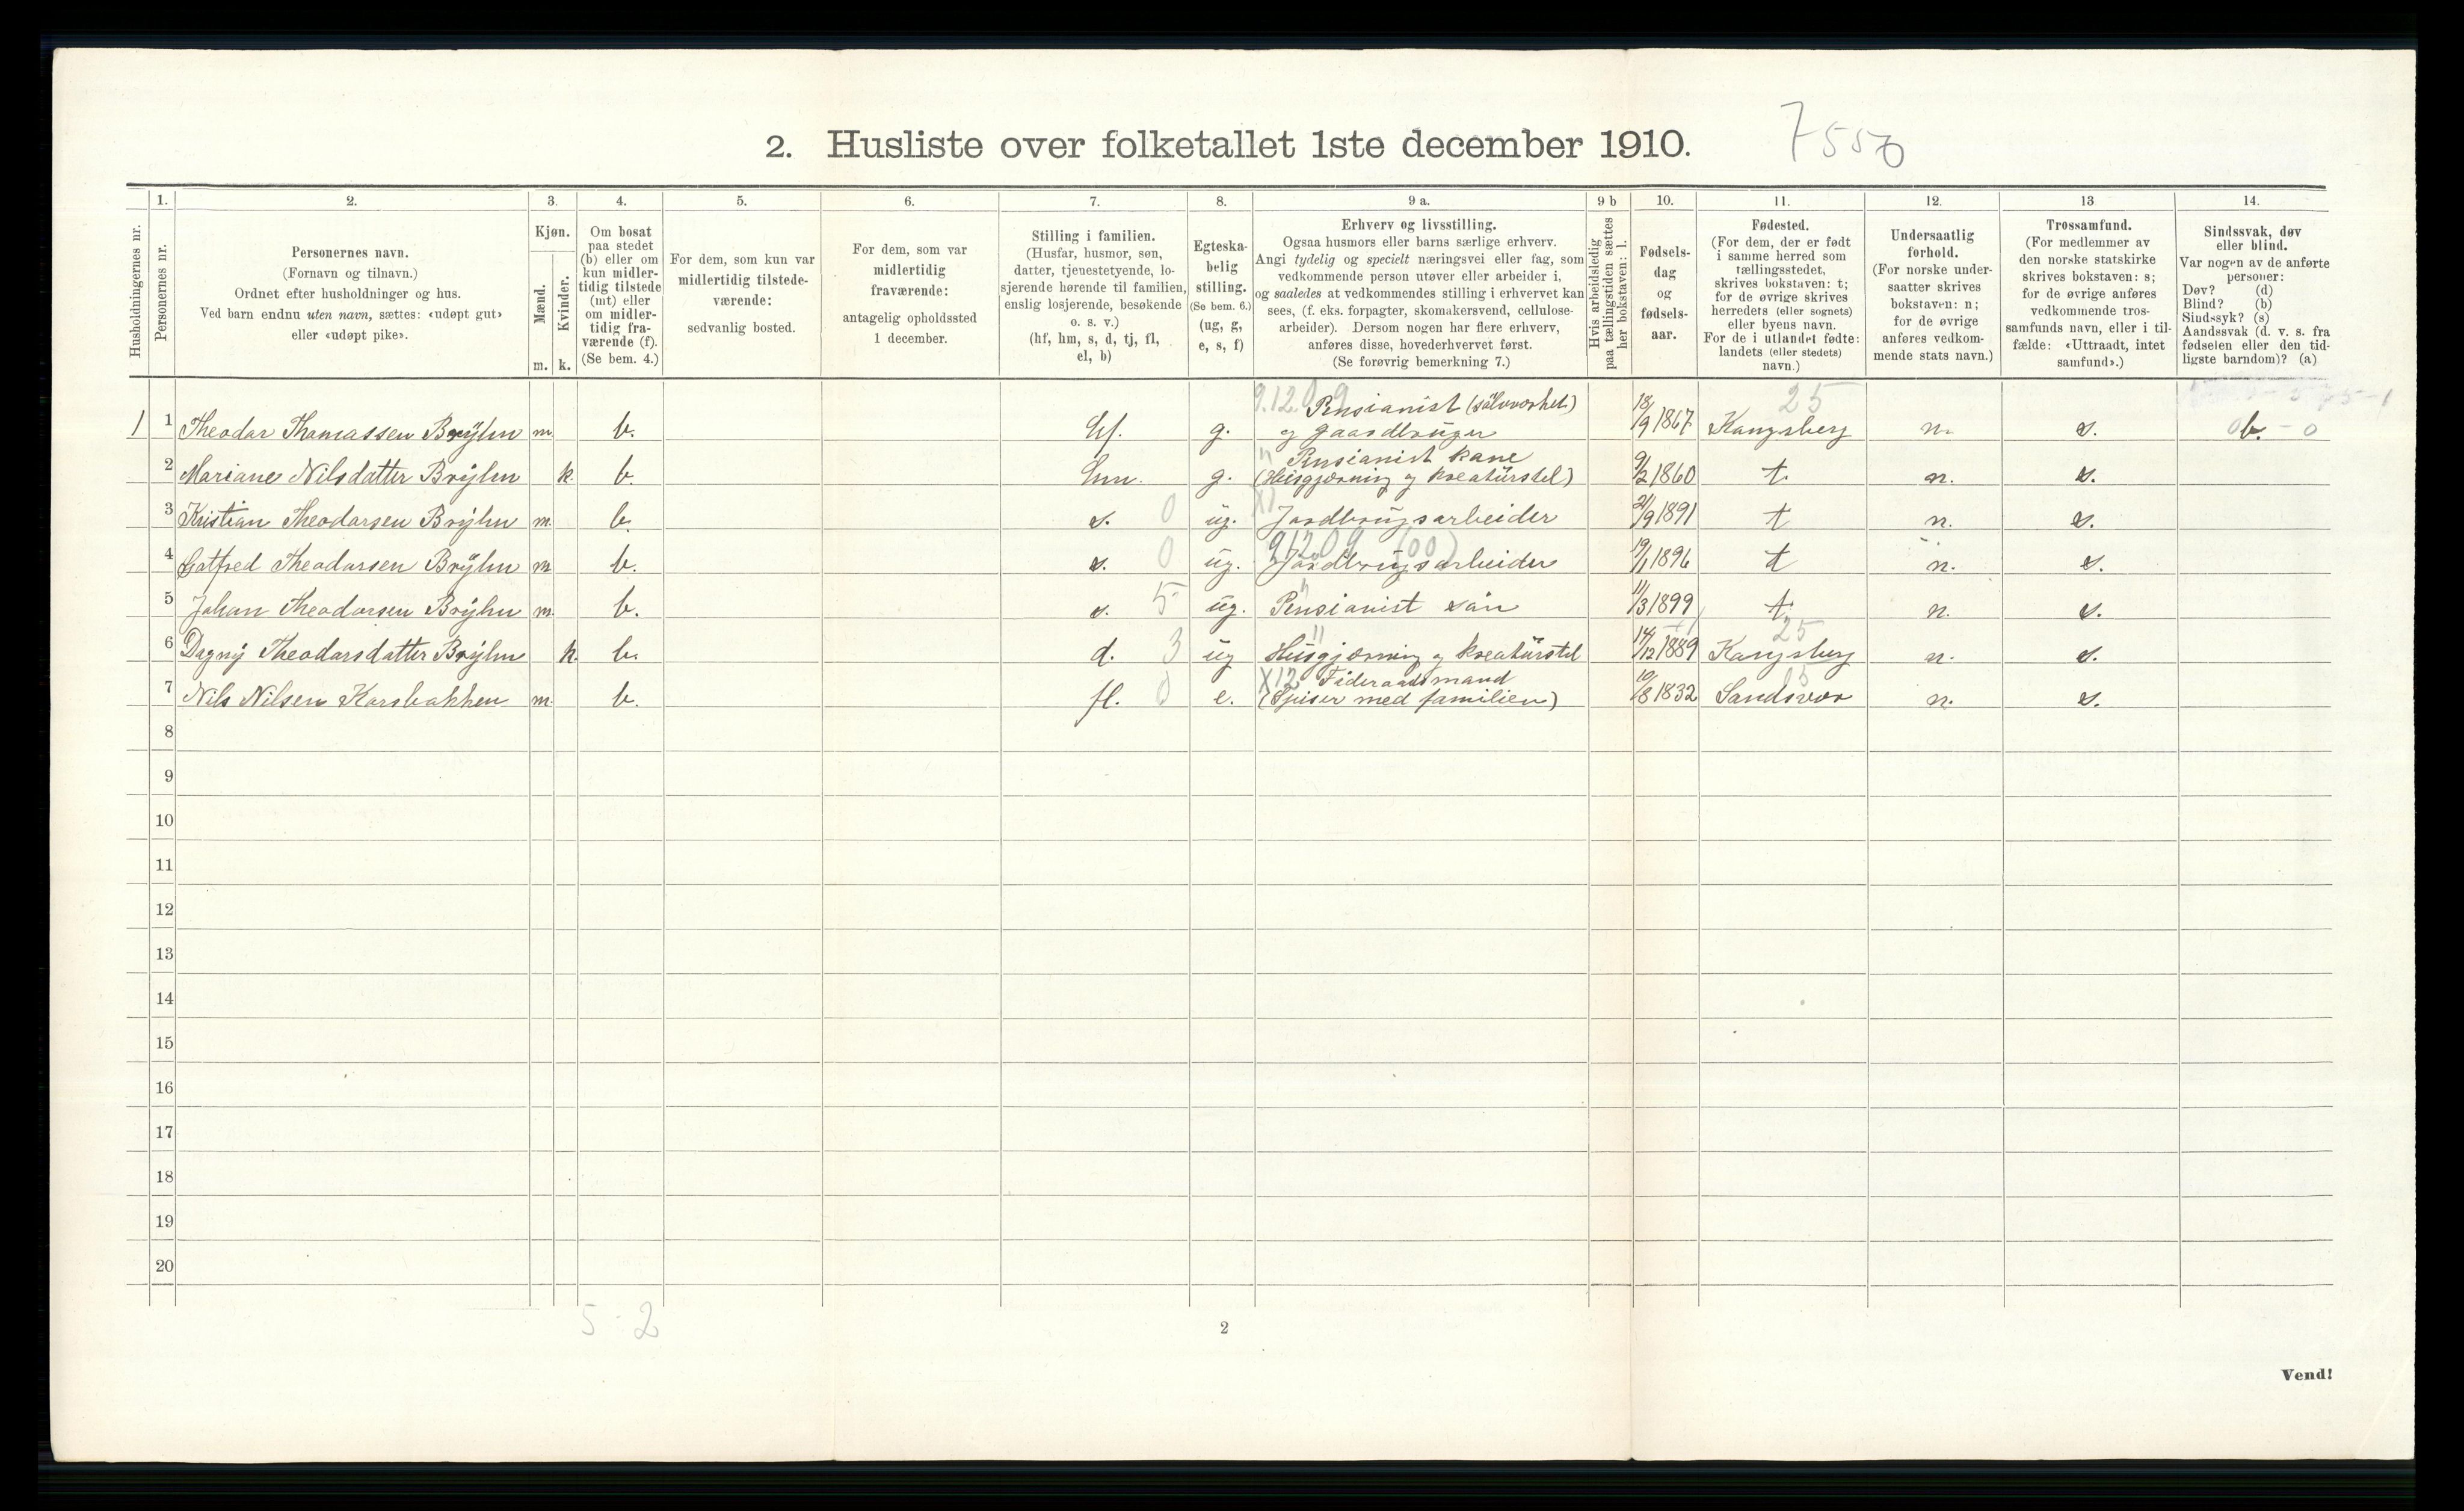 2. Husliste over folketallet 1ste december 1910.
7550
1. 2. 3. 4. 5. 6. 7. 8. 9 a. 9 b 10. 11. 12. 13 14.
Husholdningernes nr.
Personernes nr.
Personernes navn.
(Fornavn og tilnavn.)
Ordnet efter husholdninger og hus.
Ved barn endnu uten navn, sættes: «udøpt gut»
eller «udøpt pike».
Kjøn.
Mænd.
Kvinder.
m. k.
Om bosat
paa stedet
(b) eller om
kun midler-
tidig tilstede
(mt) eller
om midler-
tidig fra-
værende (f).
(Se bem. 4.)
For dem, som kun var
midlertidig tilstede-
værende:
sedvanlig bosted.
For dem, som var
midlertidig
fraværende:
antagelig opholdssted
1 december.
Stilling i familien.
(Husfar, husmor, søn,
datter, tjenestetyende, lo-
sjerende hørende til familien,
enslig losjerende, besøkende
o. s. v.)
(hf, hm, s, d, tj, fl,
el, b)
Egteska-
belig
stilling.
(Se bem. 6.)
(ug, g,
e, s, f)
Erhverv og livsstilling.
Ogsaa husmors eller barns særlige erhverv.
Angi tydelig og specielt næringsvei eller fag, som
vedkommende person utøver eller arbeider i,
og saaledes at vedkommendes stilling i erhvervet kan
sees, (f. eks. forpagter, skomakersvend, cellulose-
arbeider). Dersom nogen har flere erhverv,
anføres disse, hovederhvervet først.
(Se forøvrig bemerkning 7.)
Hvis arbeidsledig
paa tællingstiden sættes
her bokstaven: l.
Fødsels-
dag
og
fødsels-
aar.
Fødested.
(For dem, der er født
i samme herred som
tællingsstedet,
skrives bokstaven: t;
for de øvrige skrives
herredets (eller sognets)
eller byens navn.
For de i utlandet fødte:
landets (eller stedets)
navn.)
Undersaatlig
forhold.
(For norske under-
saatter skrives
bokstaven: n;
for de øvrige
anføres vedkom-
mende stats navn.)
Trossamfund.
(For medlemmer av
den norske statskirke
skrives bokstaven: s;
for de øvrige anføres
vedkommende tros-
samfunds navn, eller i til-
fælde: «Uttraadt, intet
samfund».)
Sindssvak, døv
eller blind.
Var nogen av de anførte
personer:
Døv? (d)
Blind? (b)
Sindssyk? (s)
Aandssvak (d. v. s. fra
fødselen eller den tid-
ligste barndom)? (a)
9.12.09 Pensianist (sölvverket) 25
1 1 Theodor Thomassen Brÿhn m. b. hf. g. og gaardbruger 18/9 1867 Kongsberg n. s. 0 b. - 0
" Pensianist kone
2 Mariane Nilsdatter Brÿhn k. b. hm. g. (Husgjerning og kreaturstel) 9/2 1860 t. n. s.
3 Kristian Theodorsen Brÿhn m. b. s. 0 ug. XI Jordbrugsarbeider 21/9 1891 t n. s.
91209 (00)
4 Gotfred Theodorsen Brÿhn m b. s. 0 ug. Jordbrugsarbeider 19/1 1896 t n. s.
5 Johan Theodorsen Brÿhn m. b. s. 5 ug. Pensianist sön 11/3 1899 t. n. s.
" 25
6 Dagny Theodorsdatter Brÿhn k. b. d. 3 ug Husgjerning og kreaturstel 14/12 1889 Kongsberg n. s.
X12 Föderaadsmand 05
7 Nils Nilsen Korsbakken m. b. fl. 0 e. (Spiser med familien) 10/8 1832 Sandsvær n. s.
8
9
10
11
12
13
14
15
16
17
18
19
20
5 - 2
2
Vend!